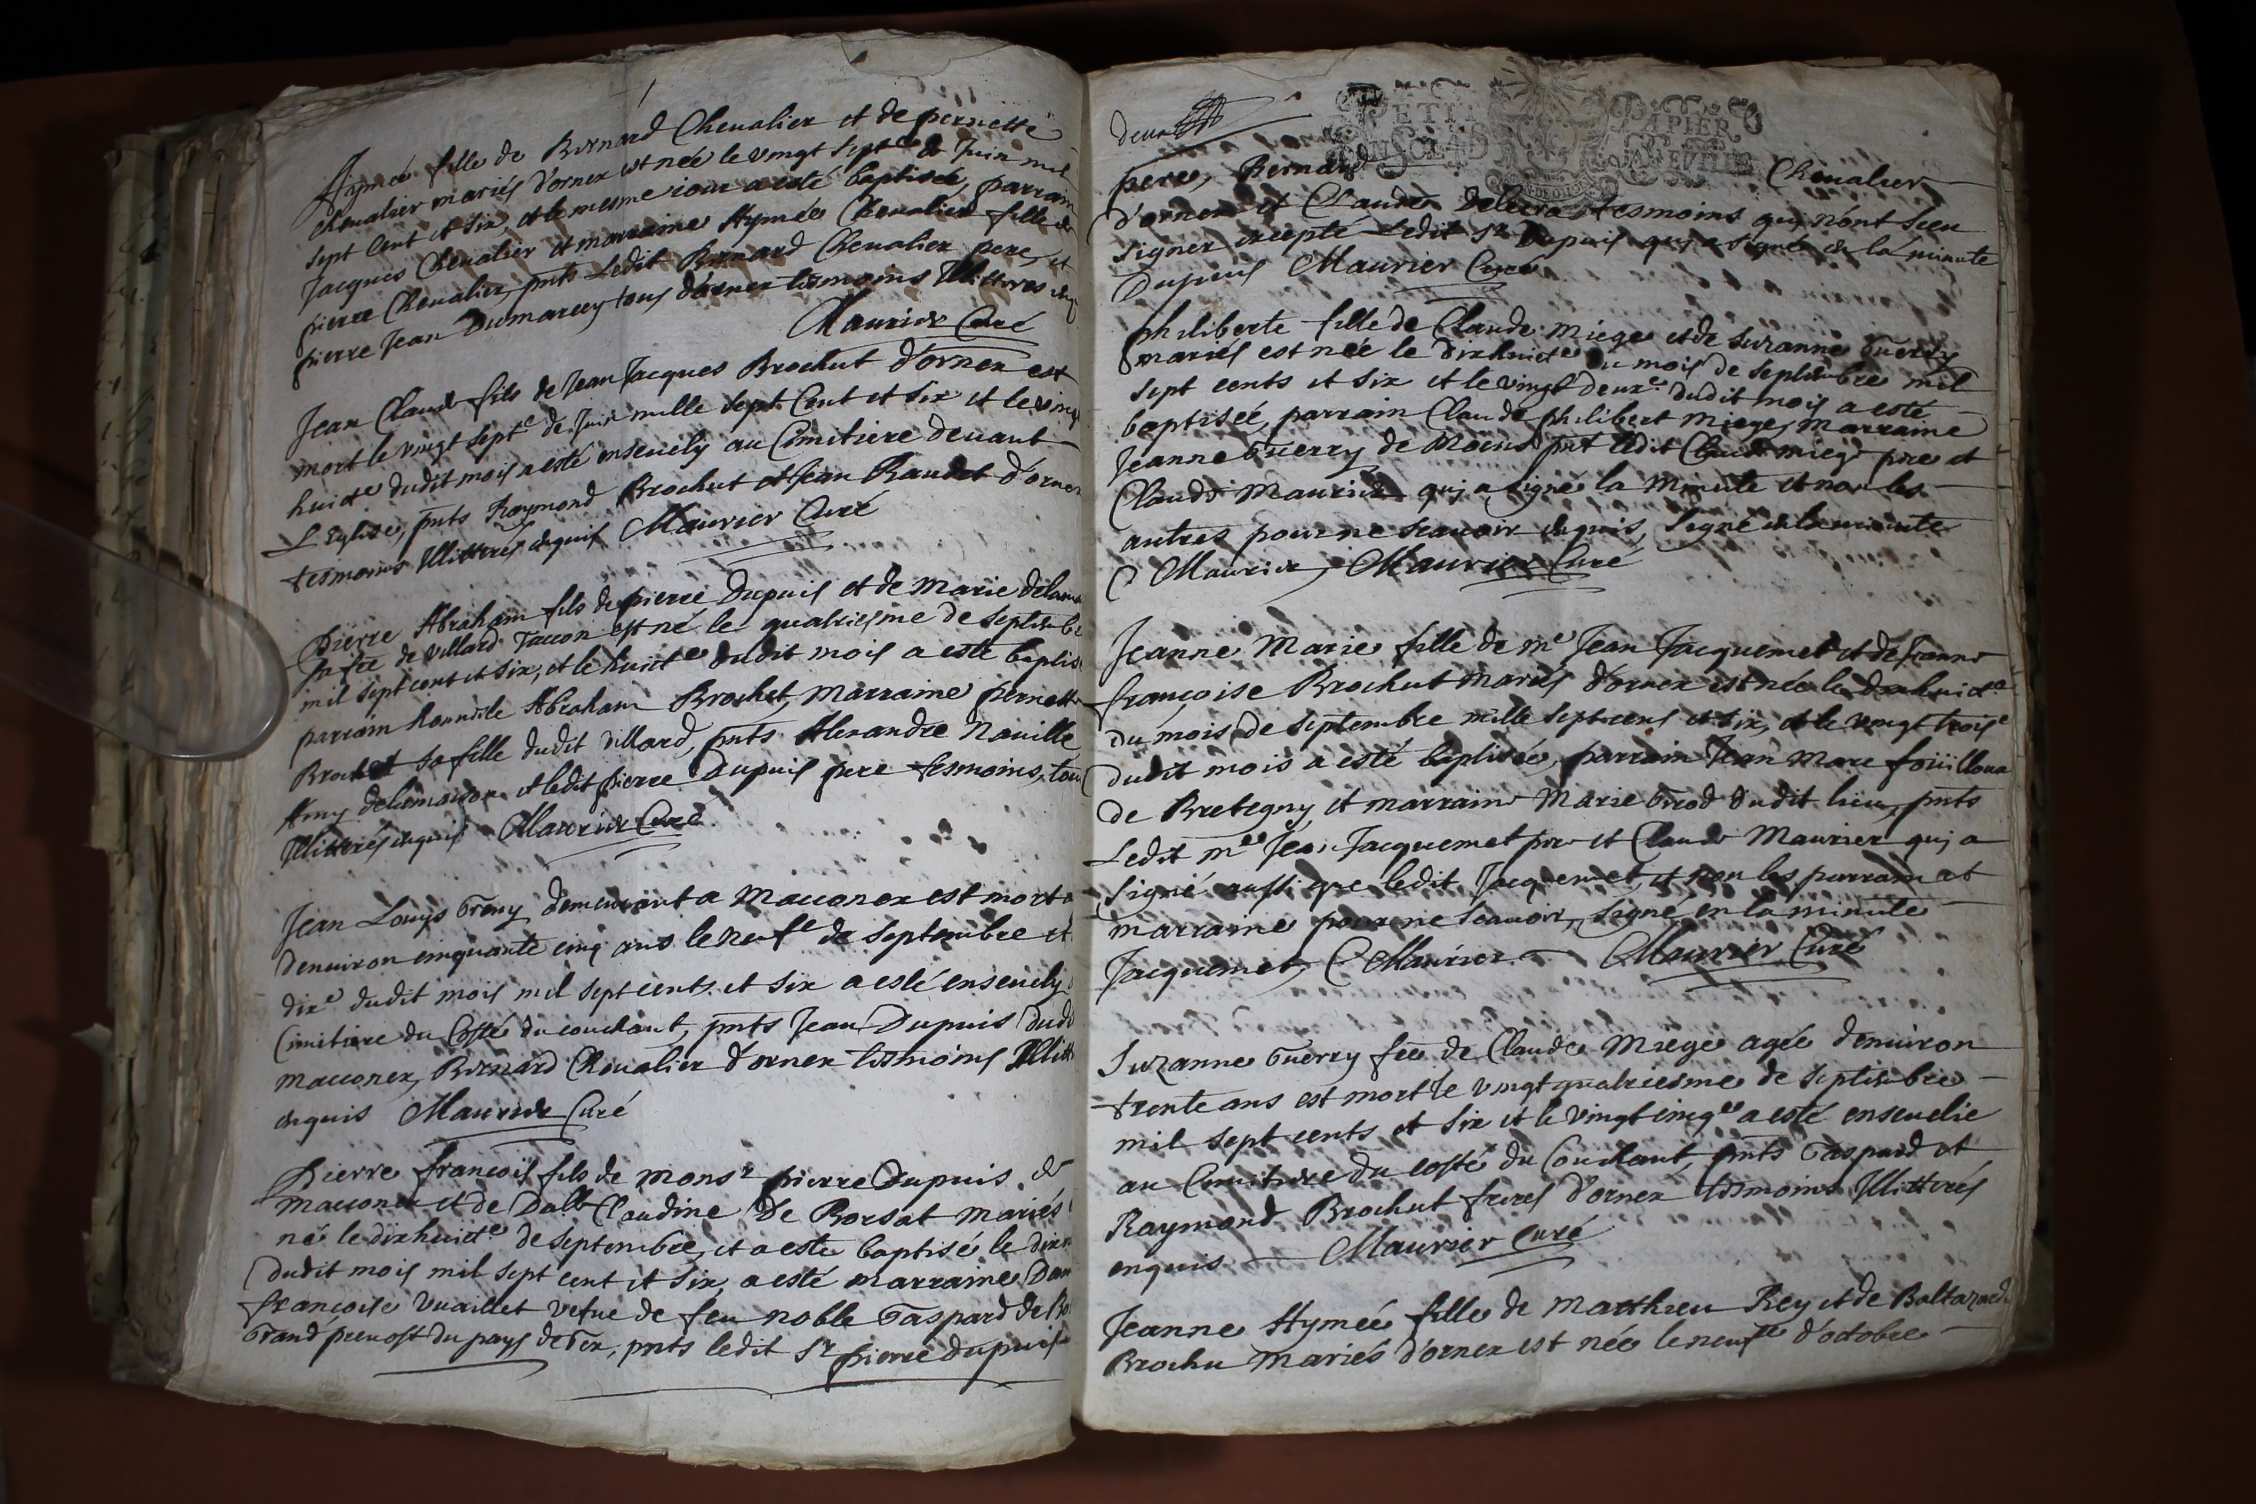 Aymeé fille de Bernard Cheualier et de pernette
Cheualier mariés d'ornex est née le vingt septe de Juin mil
sept cent et six, et le mesme iour a esté baptisée, parrain
Jacques Cheualier et marraine Aymée Cheualier fille de
pierre Cheualier, pnts Ledit Bernard Cheualier pere, et
pierre Jean Dumarcey tous d'ornex tesmoins Illitteres
Maurier Curé
Jean Claude fils de Jean Jacques Brochut d'ornex est
mort le vingt septe de Juin mille sept Cent et six et le vingt
huicte dudit mois a esté enseuely au Cimitiere deuant
L'Eglise, pnts Raymond Brochut et Jean Baudet d'ornex
tesmoins Illitterés enquis Maurier Curé
Pierre Abraham fils de pierre Dupuis et de Marie
sa fee de Villard Taccon est né le quatriesme de Septembre
mil sept cent et six, et le huicte dudit mois a esté baptisé
parrain honneste Abraham Brochet, marraine pernette
Brochet sa fille dudit Villard, pnts Alexandre Nouille
Amy delamaison et ledit pierre Dupuis pere tesmoins, tous
Illitterés enquis Maurier Curé
Jean Louys Greny demeurant a Maconex est mort a
denuiron cinquante cinq ans le neufe de septembre et
dixe dudit mois mil sept cents et six a esté enseuely
Cimitiere du Costé du couchant, pnts Jean Dupuis dudit
macconex, Bernard Cheualier d'ornex tesmoins Illitt
enquis Maurier Curé
Pierre françois fils de Monsr pierre Dupuis de
Macconex et de Dalle Claudine De Borsat mariés
né le dixhuicte de Septembre, et a esté baptisé le dix
dudit mois mil sept cent et six, a esté marraine
françoise Vuaillet vefue de feu noble Gaspard de
Grand preuost du pays de Gex, pnts ledit Sr pierre dupuis
deux
pere, Bernard Cheualier
PETIT PAPIER
d'ornex et Claude Delecra tesmoins qui n'ont sceu
signer excepté Ledit Sr Dupuis qui a signé en la minute
Dupuis Maurier Curé
philiberte fille de Claude Miege et de Suzanne Guerry
mariés est née le dixhuicte du mois de septembre mil
sept cents et six et le vingt deuxe dudit mois a esté
baptisée, parrain Claude philibert Miege, marraine
Jeanne Guerry de Moens pnt ledit Claude miege pere et
Claude Maurier qui a signé la Minute et non les
autres pour ne scauoir enquis, Signé en la minute
C Maurier, Maurier Curé
Jeanne Marie fille de me Jean Jacquemet et de Jeanne
françoise Brochut mariés d'ornex est née le dixhuicte
du mois de septembre mille sept cens et six, et le vingt troise
dudit mois a esté baptisée, parrain Jean Marc foüilloux
de Bretegny et marraine Marie Grod dudit lieu, pnts
Ledit me Jean Jacquemet pere et Claude Maurier qui a
signé aussi que ledit Jacquemet, et non les parrain et
marraine pour ne scauoir, signé en la minute
Jacquemet, C Maurier Maurier Curé
Suzanne Guerry fee de Claude Miege agée denuiron
trente ans est morte le vingt quatriesme de septembre
mil sept cents et six et le vingt cinqe a esté enseuelie
au Cimitiere du costé du Couchant, pnts Gaspard et
Raymond Brochut freres d'ornex tesmoins Illitterés
enquis Maurier Curé
Jeanne Aymeé fille de Matthieu Rey et de Baltazarde
Brochu mariés d'ornex est née le neufe d'octobre